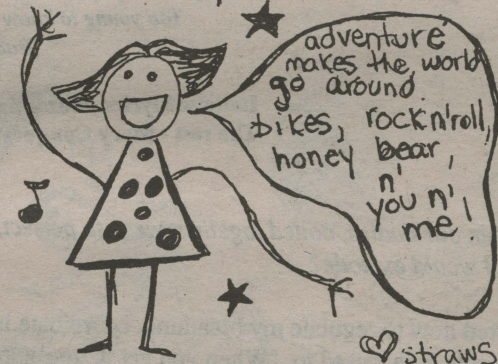 adventure
makes the world
go around.
bikes, rock n'roll,
honey bear,
n'
you n'
me!
♡ straws